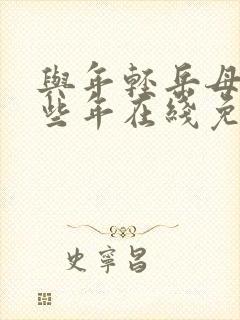 與年輕岳母
些年在綫免
史寧昌